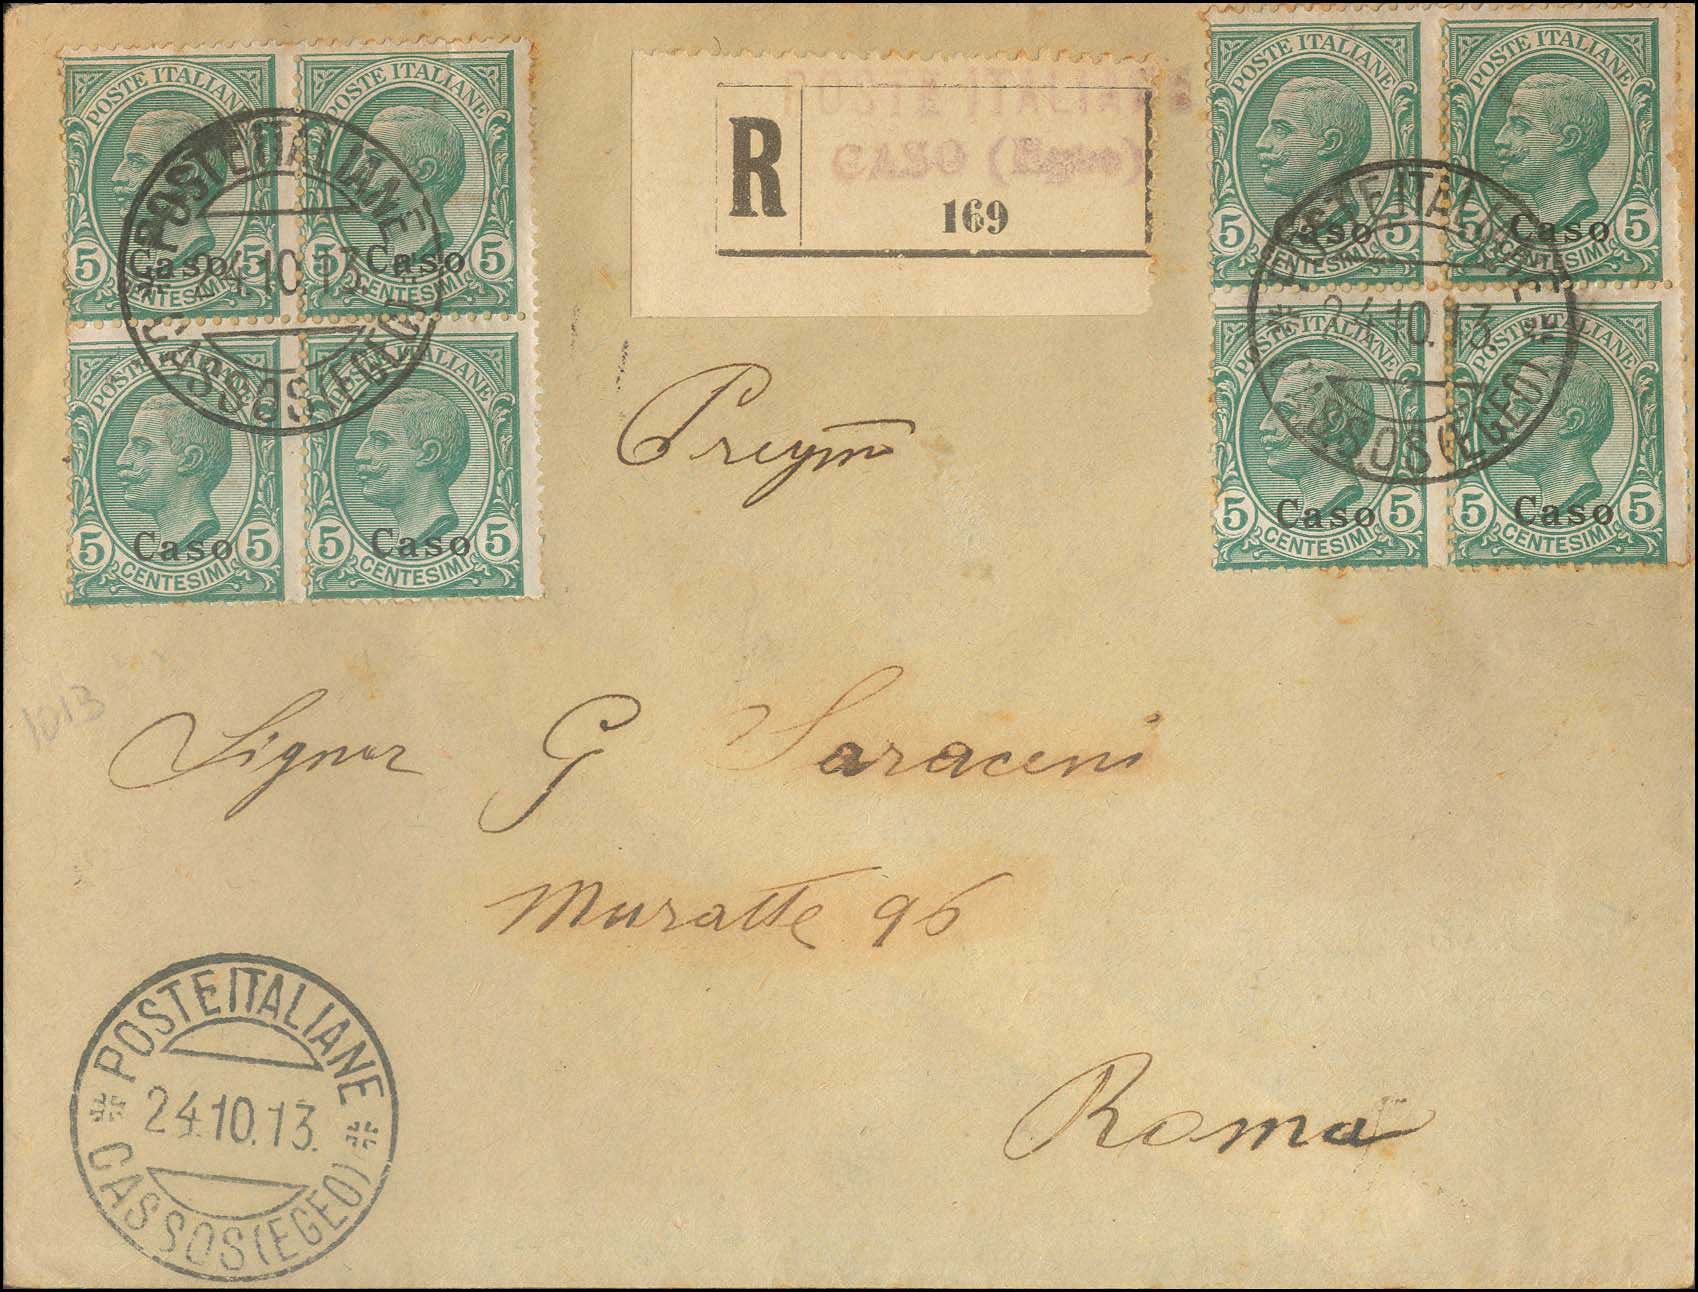 POSTE ITALIANE POSTE ITALIANE
5 Caso 5 5 Caso 5
CENTESIMI CENTESIMI
POSTE ITALIANE POSTE ITALIANE
5 Caso 5 5 Caso 5
CENTESIMI CENTESIMI
POSTE ITALIANE
24.10.13.
CASSOS (EGEO)
POSTE ITALIANE
CASO (Egeo)
R
169
POSTE ITALIANE POSTE ITALIANE
5 Caso 5 5 Caso 5
CENTESIMI CENTESIMI
POSTE ITALIANE POSTE ITALIANE
5 Caso 5 5 Caso 5
CENTESIMI CENTESIMI
POSTE ITALIANE
24.10.13.
CASSOS (EGEO)
Pregmo
1013
Signor G Saraceni
Muratte 96
Roma
POSTE ITALIANE
24.10.13.
CASSOS (EGEO)